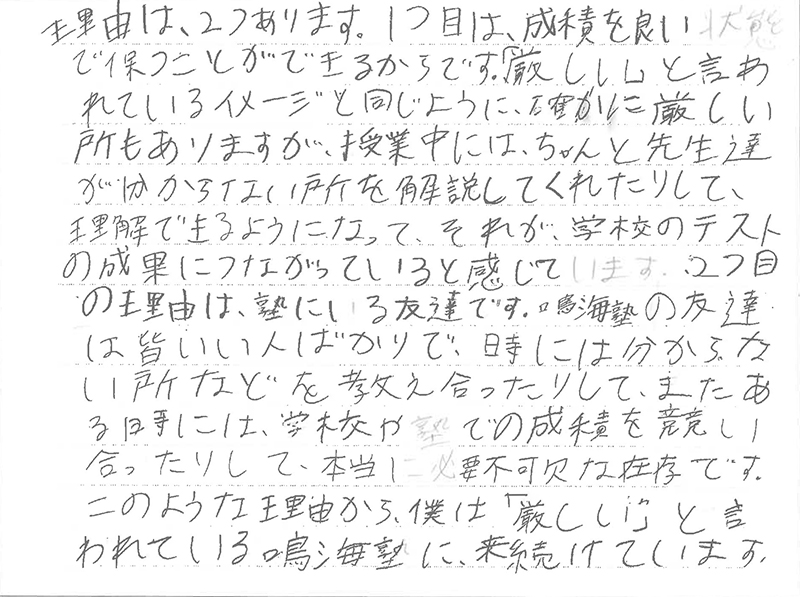 理由は、2つあります。1つ目は、成積を良い状態
で保つことができるからです。「厳しい」と言わ
れているイメージと同じように、確かに厳しい
所もありますが、授業中には、ちゃんと先生達
が分からない所を解説してくれたりして、
理解できるようになって、それが、学校のテスト
の成果につながっていると感じています。2つ目
の理由は、塾にいる友達です。鳴海塾の友達
は皆いい人ばかりで、時には分からな
い所などを教え合ったりして、またあ
る時には、学校や塾での成積を競い
合ったりして、本当に必要不可欠な存在です。
このような理由から、僕は「厳しい」と言
われている鳴海塾に、来続けています。